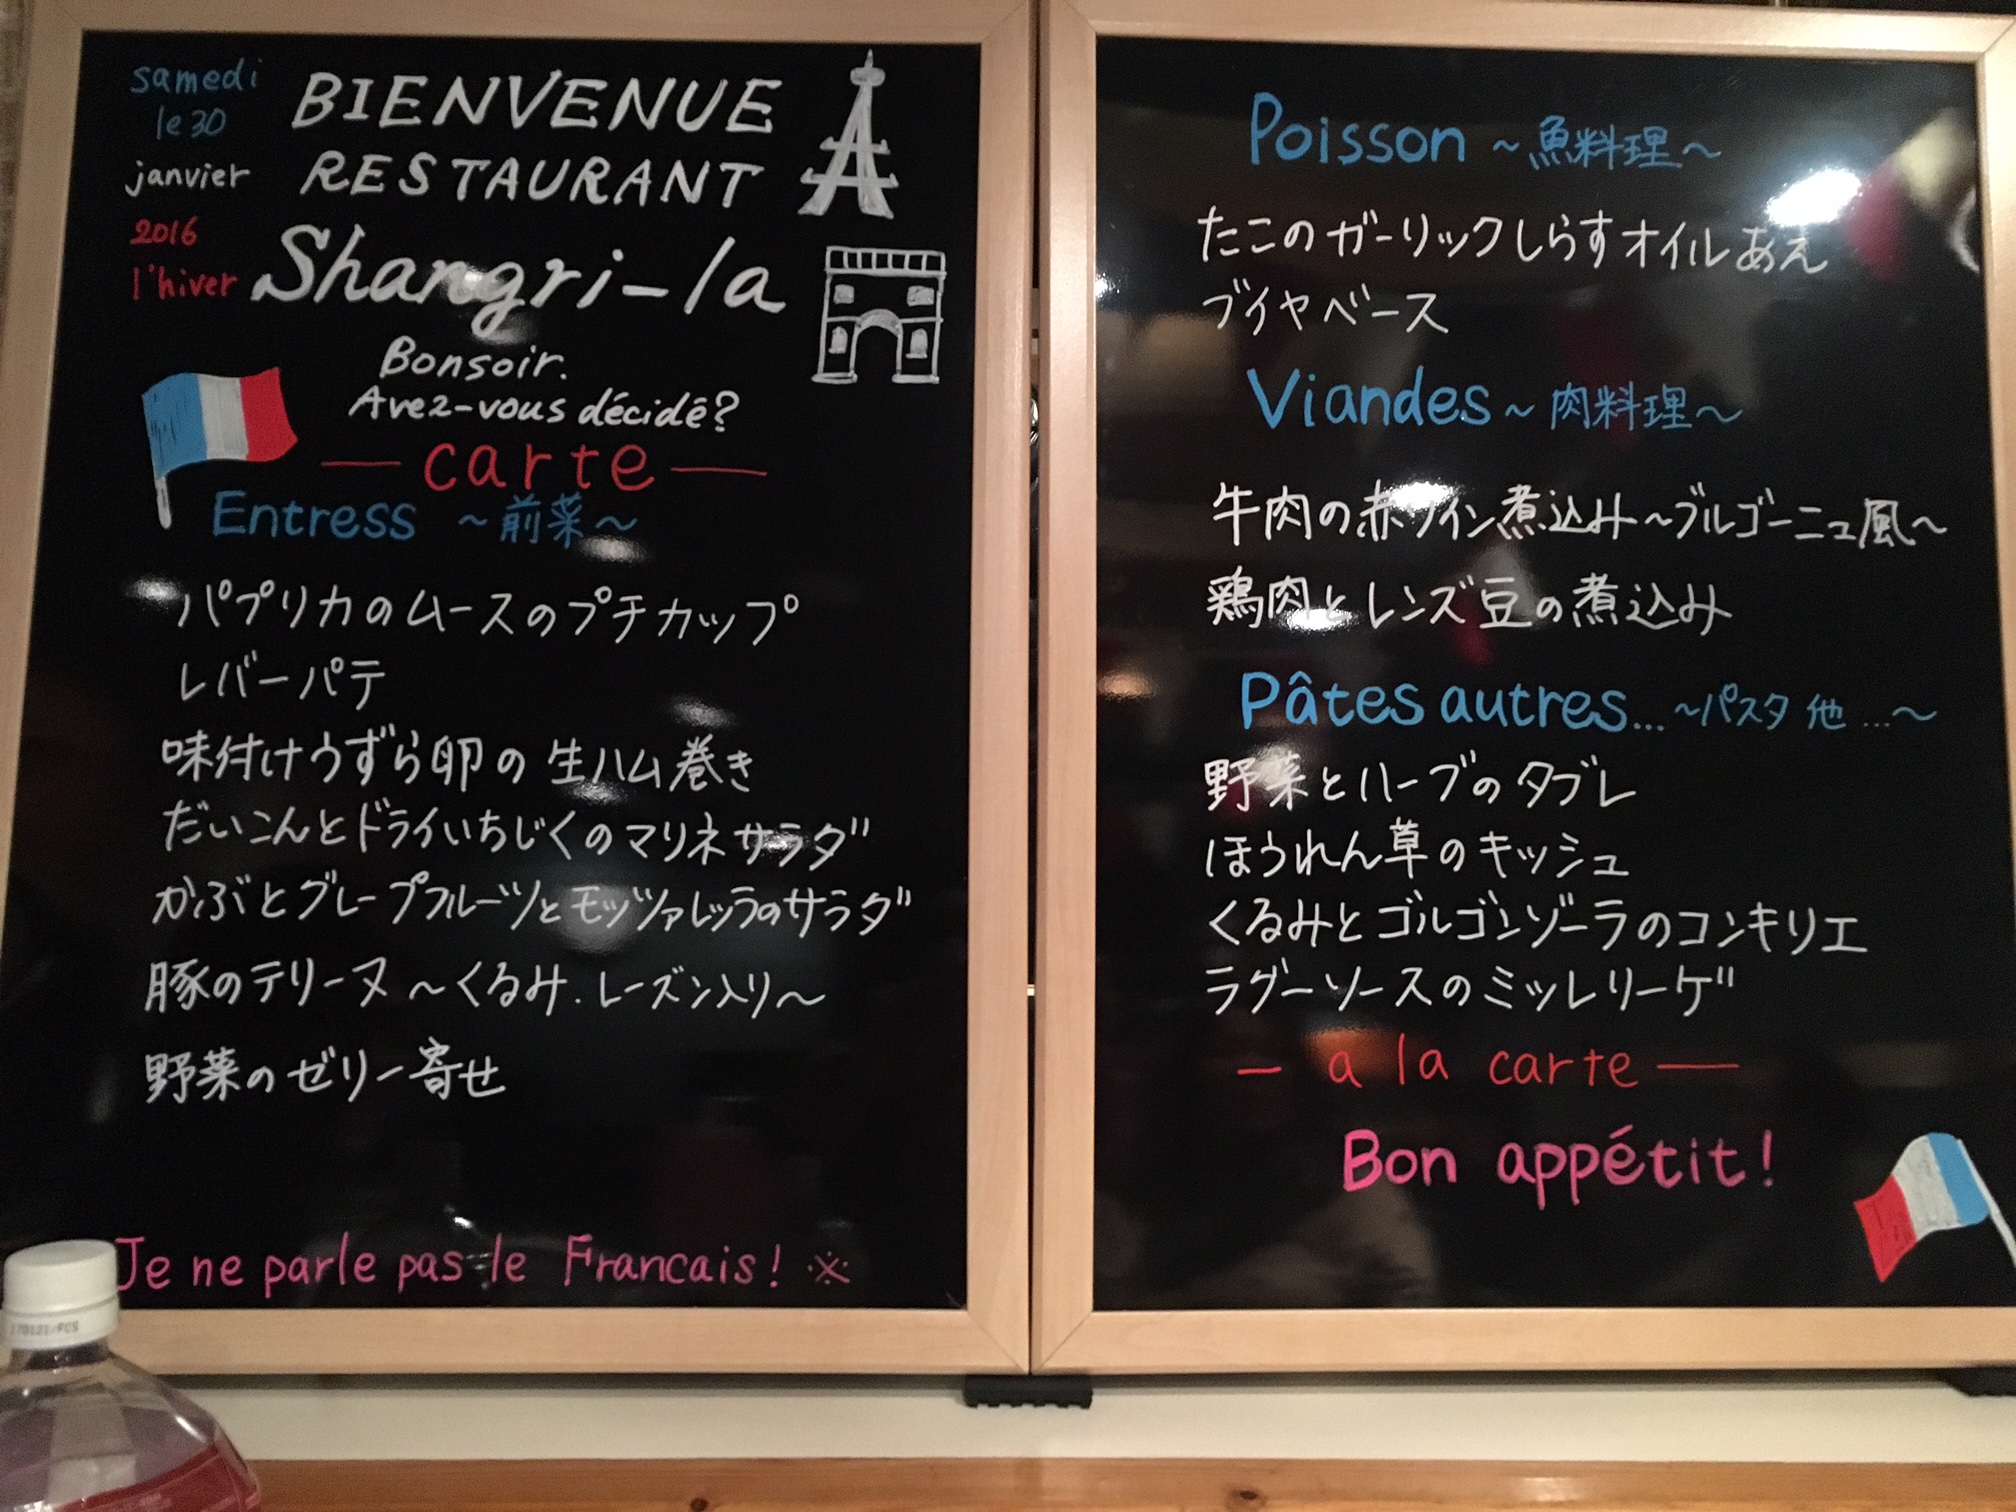 samedi
le 30
janvier
2016
l'hiver
BIENVENUE
RESTAURANT
Shangri-la
Bonsoir.
Avez-vous décidé?
— carte —
Entress ~前菜~
パプリカのムースのプチカップ
レバーパテ
味付けうずら卵の生ハム巻き
だいこんとドライいちじくのマリネサラダ
かぶとグレープフルーツとモッツァレッラのサラダ
豚のテリーヌ ~くるみ.レーズン入り~
野菜のゼリー寄せ
Je ne parle pas le Francais! ※
Poisson ~魚料理~
たこのガーリックしらすオイルあえ
ブイヤベース
Viandes ~肉料理~
牛肉の赤ワイン煮込み~ブルゴーニュ風~
鶏肉とレンズ豆の煮込み
Pâtes autres... ~パスタ 他...~
野菜とハーブのタブレ
ほうれん草のキッシュ
くるみとゴルゴンゾーラのコンキリエ
ラグーソースのミッレリーゲ
— a la carte —
Bon appétit!